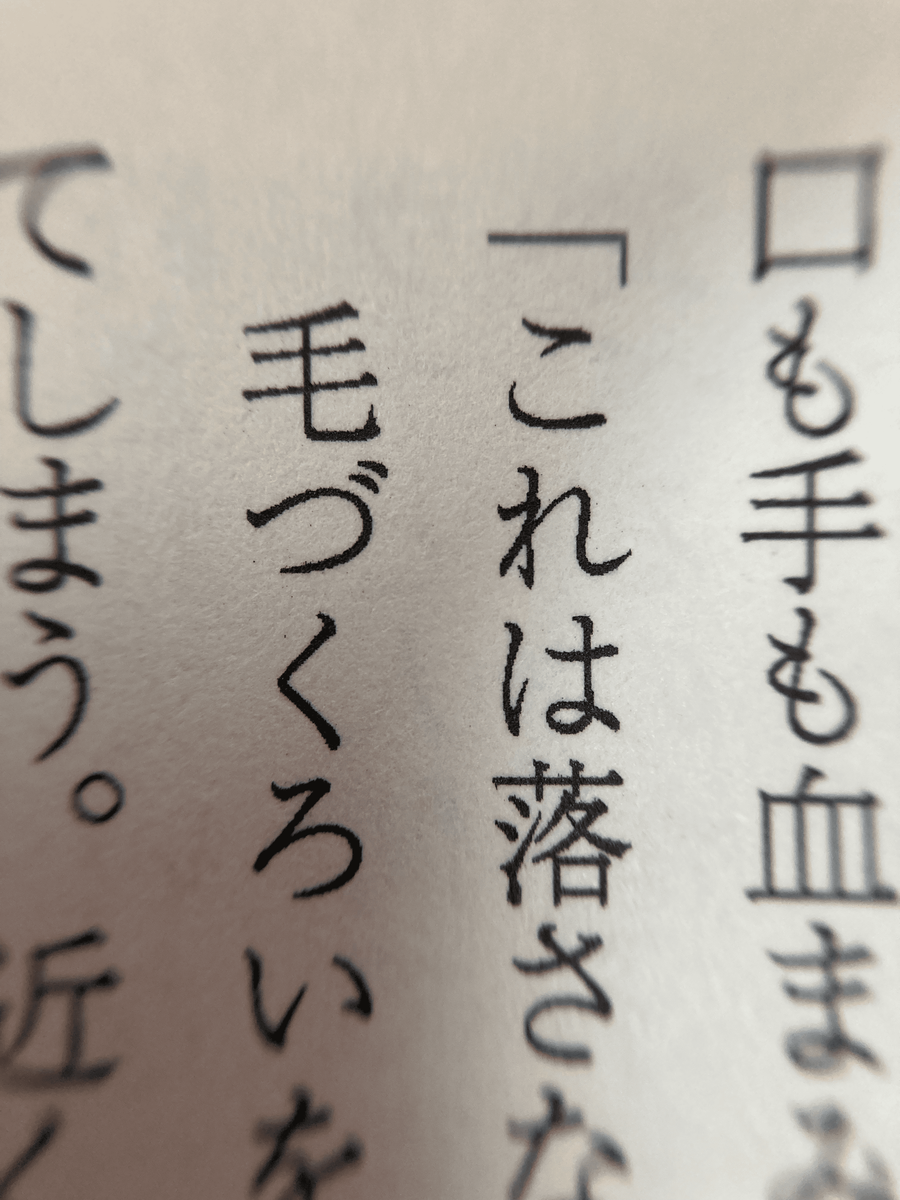 口も手も血ま
「これは落さな
毛づくろいを
てしまう。近く